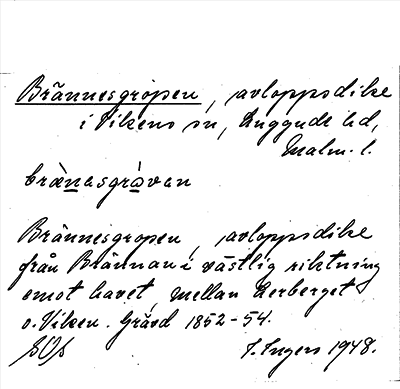 Brännesgropen, avloppsdike
i Vikens sn, Luggude hd,
Malm. l.
brænasgråvan
Brännesgropen, avloppsdike
från Brännan i västlig riktning
emot havet, mellan Lerberget
o. Viken. Grävd 1852-54.
I. Ingers 1948.